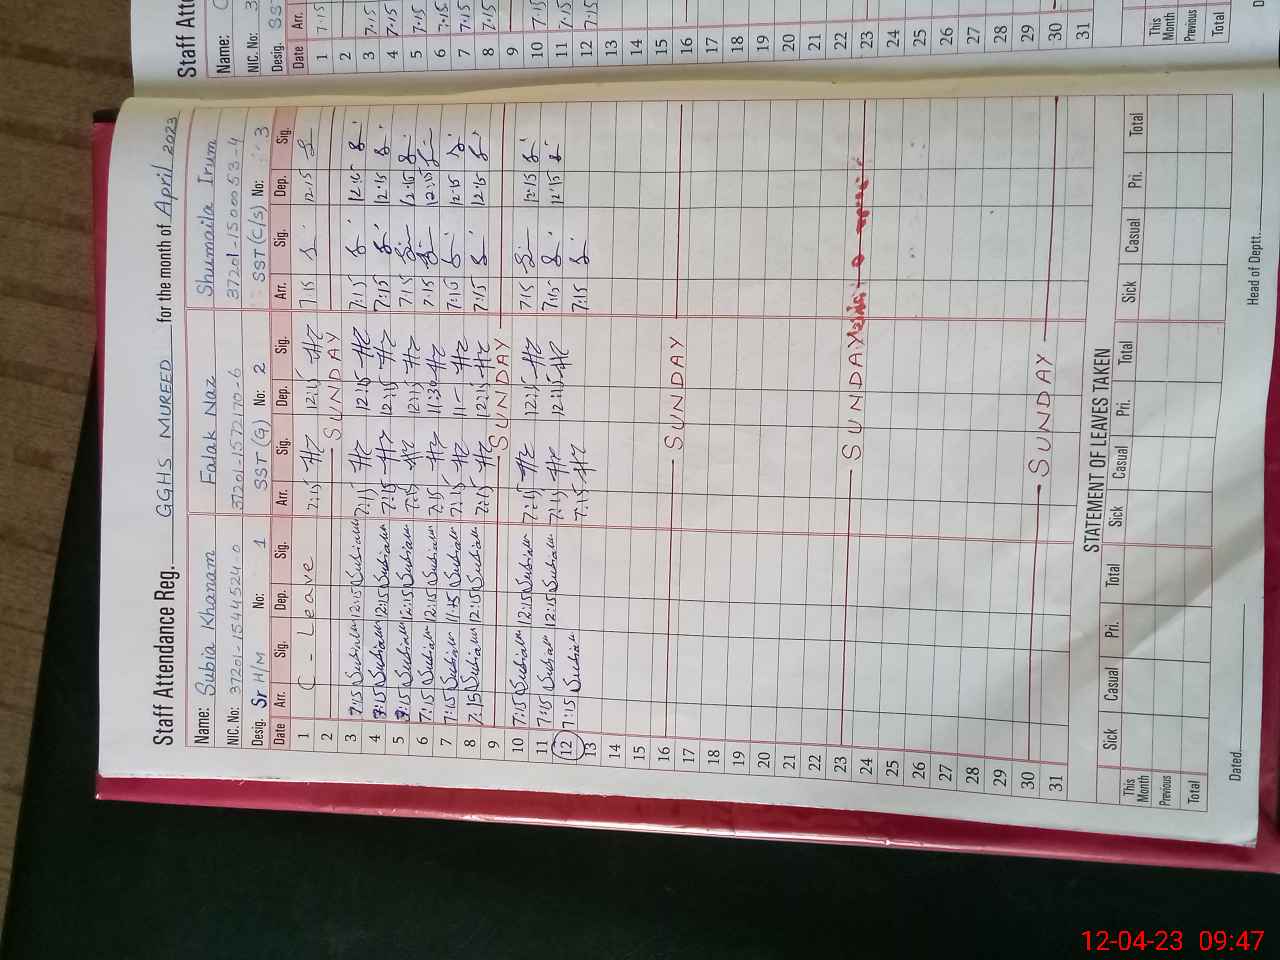 Staff Attendance Reg. GGHS MUREED for the month of April 2023
Name: Subia Khanam Falak Naz Shumaila Irum
NIC. No: 37201-1544524-0 37201-1572170-6 37201-1500053-4
Desig. Sr H/M No: 1 SST (G) No: 2 SST (C/S) No: 3
Date Arr. Sig. Dep. Sig. Arr. Sig. Dep. Sig. Arr. Sig. Dep. Sig.
1 C - Leave 7:15 12:15 7:15 12:15
2 SUNDAY
3 7:15 Subia 12:15 Subia 7:15 12:15 7:15 12:15
4 7:15 Subia 12:15 Subia 7:15 12:15 7:15 12:15
5 7:15 Subia 12:15 Subia 7:15 12:15 7:15 12:15
6 7:15 Subia 12:15 Subia 7:15 11:30 7:15 12:15
7 7:15 Subia 11:15 Subia 7:15 11- 7:15 12:15
8 7:15 Subia 12:15 Subia 7:15 12:15 7:15 12:15
9 SUNDAY
10 7:15 Subia 12:15 Subia 7:15 12:15 7:15 12:15
11 7:15 Subia 12:15 Subia 7:15 12:15 7:15 12:15
12 7:15 Subia 7:15 7:15
13
14
15
16 SUNDAY
17
18
19
20
21
22
23 SUNDAY
24
25
26
27
28
29
30 SUNDAY
31
STATEMENT OF LEAVES TAKEN
Sick Casual Pri. Total Sick Casual Pri. Total Sick Casual Pri. Total
This Month
Previous
Total
Dated Head of Deptt.
Staff Atte
Name:
NIC. No: 3
Desig. SS
Date Arr.
1 7:15
2
3 7:15
4 7:15
5 7:15
6 7:15
7 7:15
8 7:15
9
10 7:15
11 7:15
12 7:15
13
14
15
16
17
18
19
20
21
22
23
24
25
26
27
28
29
30
31
This Month
Previous
Total
12-04-23 09:47